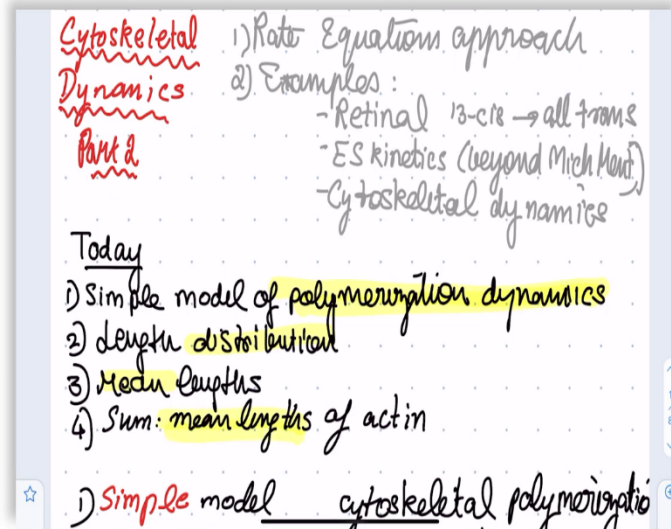 Cytoskeletal
Dynamics
Part 2
1) Rate Equations approach
2) Examples:
- Retinal 13-cis → all trans
- ES kinetics (beyond Mich Ment)
- Cytoskeletal dynamics
Today
1) Simple model of polymerization dynamics
2) Length distribution
3) Mean lengths
4) Sum: mean lengths of actin
1) Simple model cytoskeletal polymerizatio